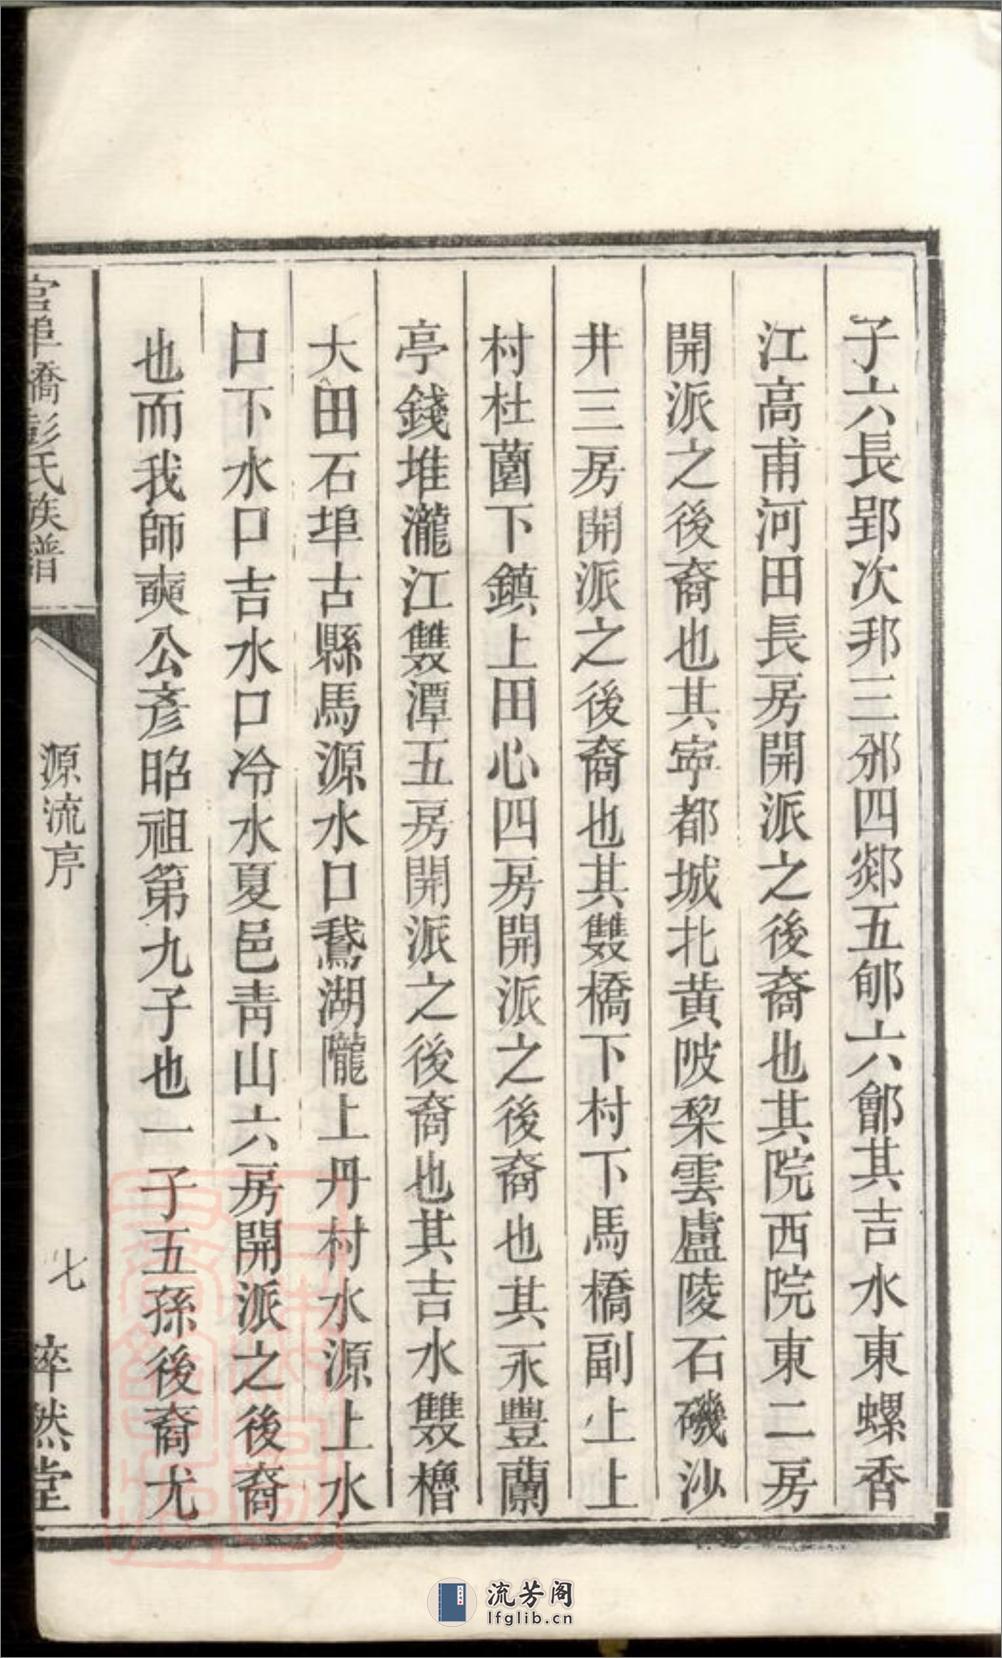 子六長郢次邦三邠四郯五郇六鄫其吉水東螺香
江高甫河田長房開派之後裔也其院西院東二房
開派之後裔也其寧都城北黄陂棃雲盧陵石磯沙
井三房開派之後裔也其雙橋下村下馬橋副上上
村杜薗下鎮上田心四房開派之後裔也其永豐蘭
亭錢堆瀧江雙潭五房開派之後裔也其吉水雙櫓
大田石埠古縣馬源水口鵞湖隴上丹村水源上水
口下水口吉水口冷水夏邑靑山六房開派之後裔
也而我師奭公彥昭祖第九子也一子五孫後裔尤
官埠橋彭氏族譜
源流序
七
睟然堂
流芳阁
lfglib.cn